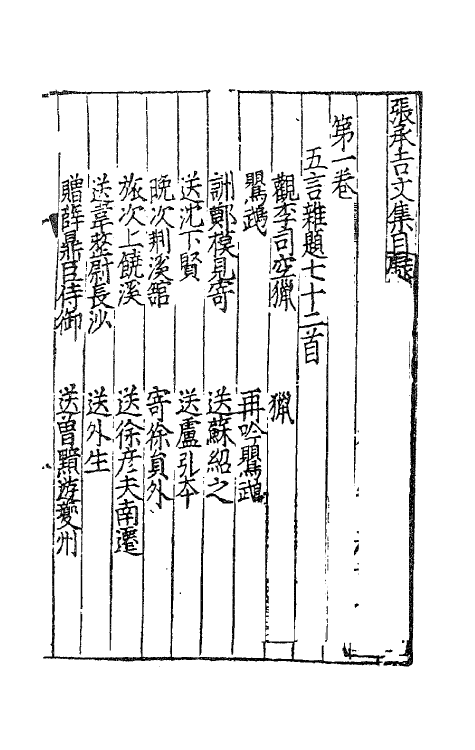 張承吉文集目録
第一卷
五言雜題七十二首
觀李司空獵　獵
鸎鵡　再吟鸎鵡
詶鄭模見寄　送蘇紹之
送沈下賢　送盧弘夲
晚次荆溪舘　寄徐員外
旅次上饒溪　送徐彦夫南遷
送韋整尉長沙　送外生
贈薛鼎臣侍御　送曾黯遊夔州